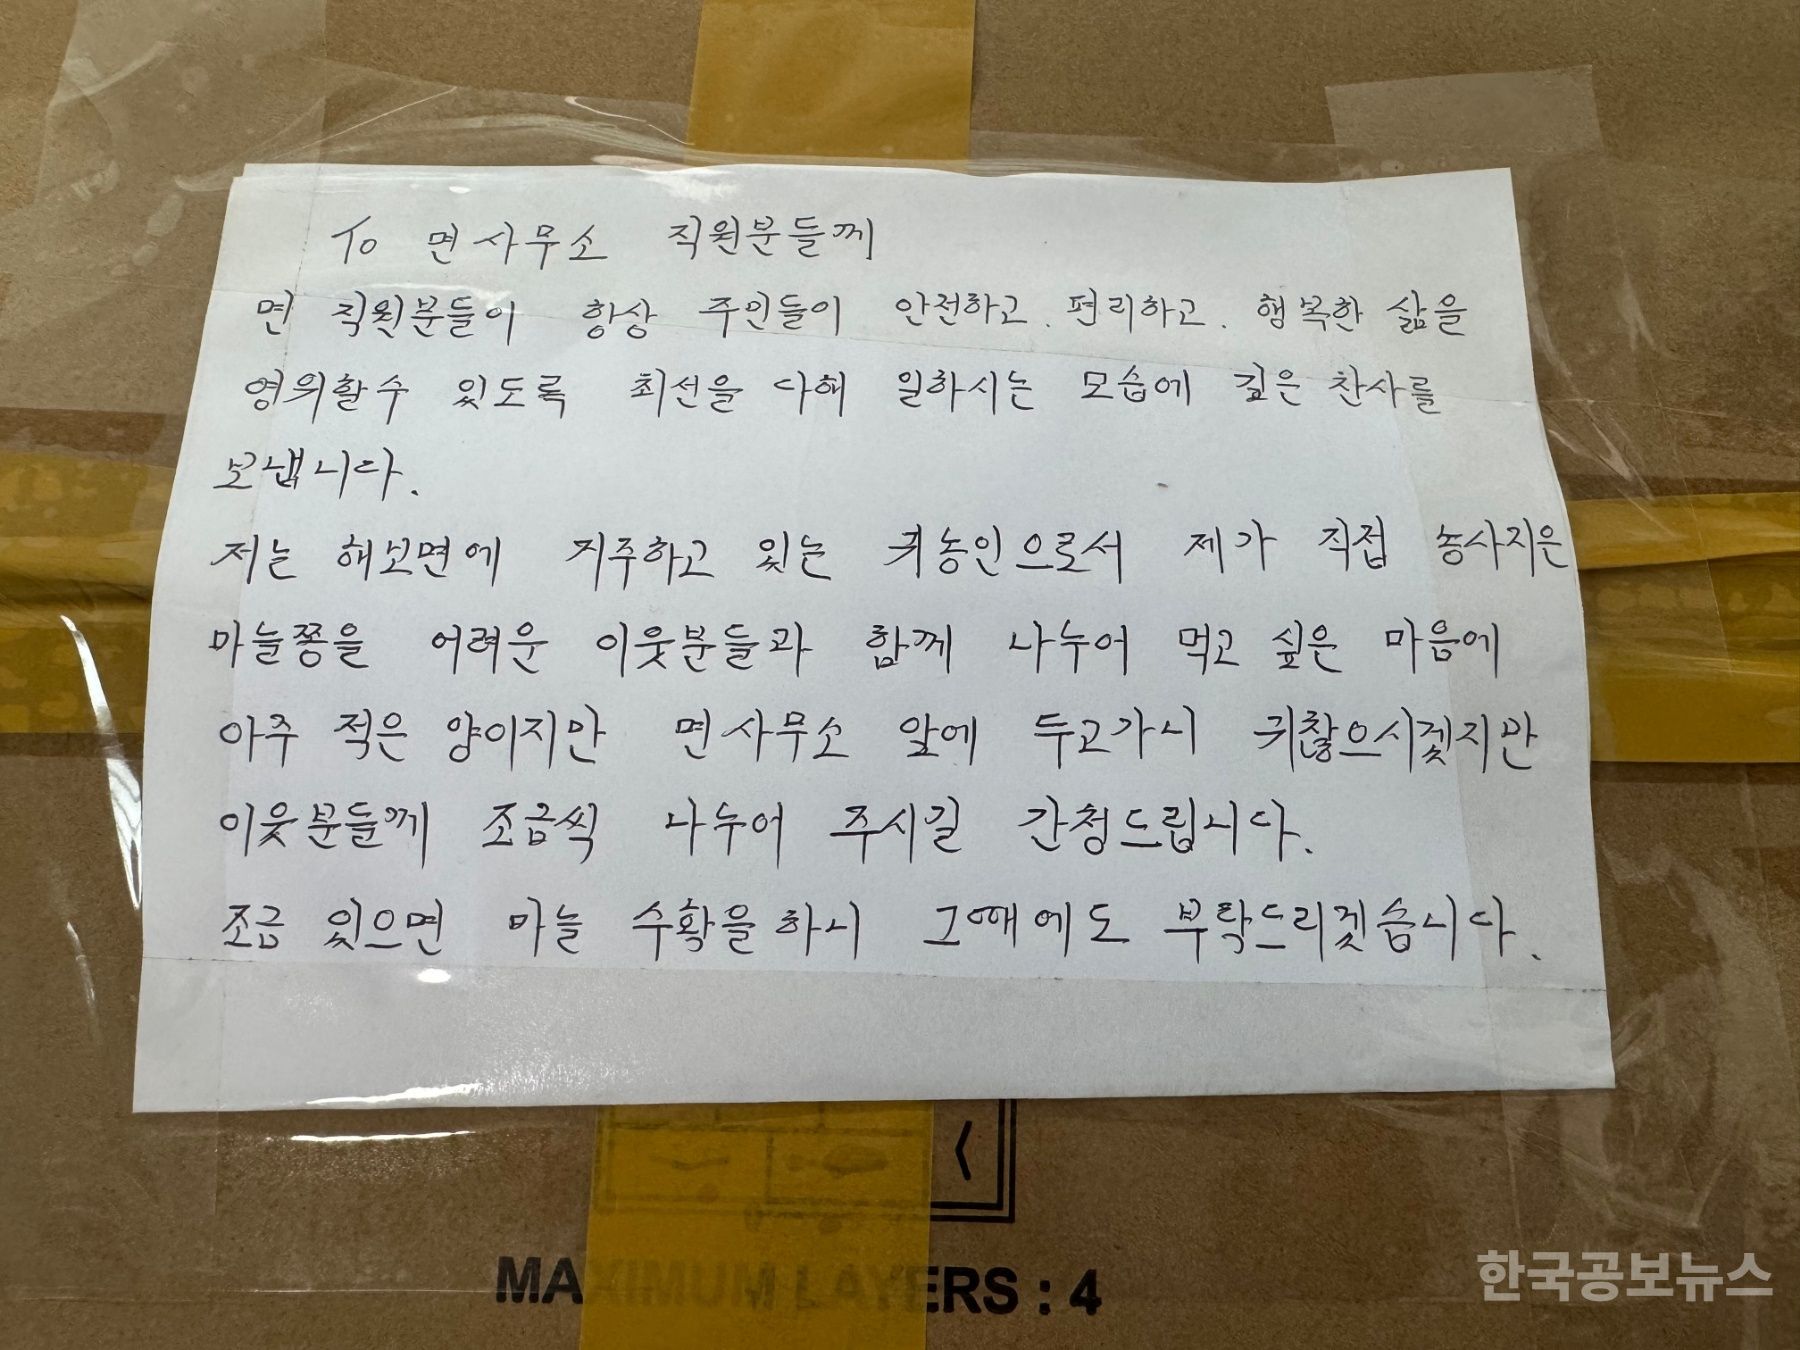 To 면사무소 직원분들께
면 직원분들이 항상 주민들이 안전하고. 편리하고. 행복한 삶을
영위할수 있도록 최선을 다해 일하시는 모습에 깊은 찬사를
보냅니다.
저는 해보면에 거주하고 있는 귀농인으로서 제가 직접 농사지은
마늘쫑을 어려운 이웃분들과 함께 나누어 먹고 싶은 마음에
아주 적은 양이지만 면사무소 앞에 두고가니 귀찮으시겠지만
이웃분들께 조금씩 나누어 주시길 간청드립니다.
조금 있으면 마늘 수확을하니 그때에도 부탁드리겠습니다.
MAXIMUM LAYERS : 4
한국공보뉴스